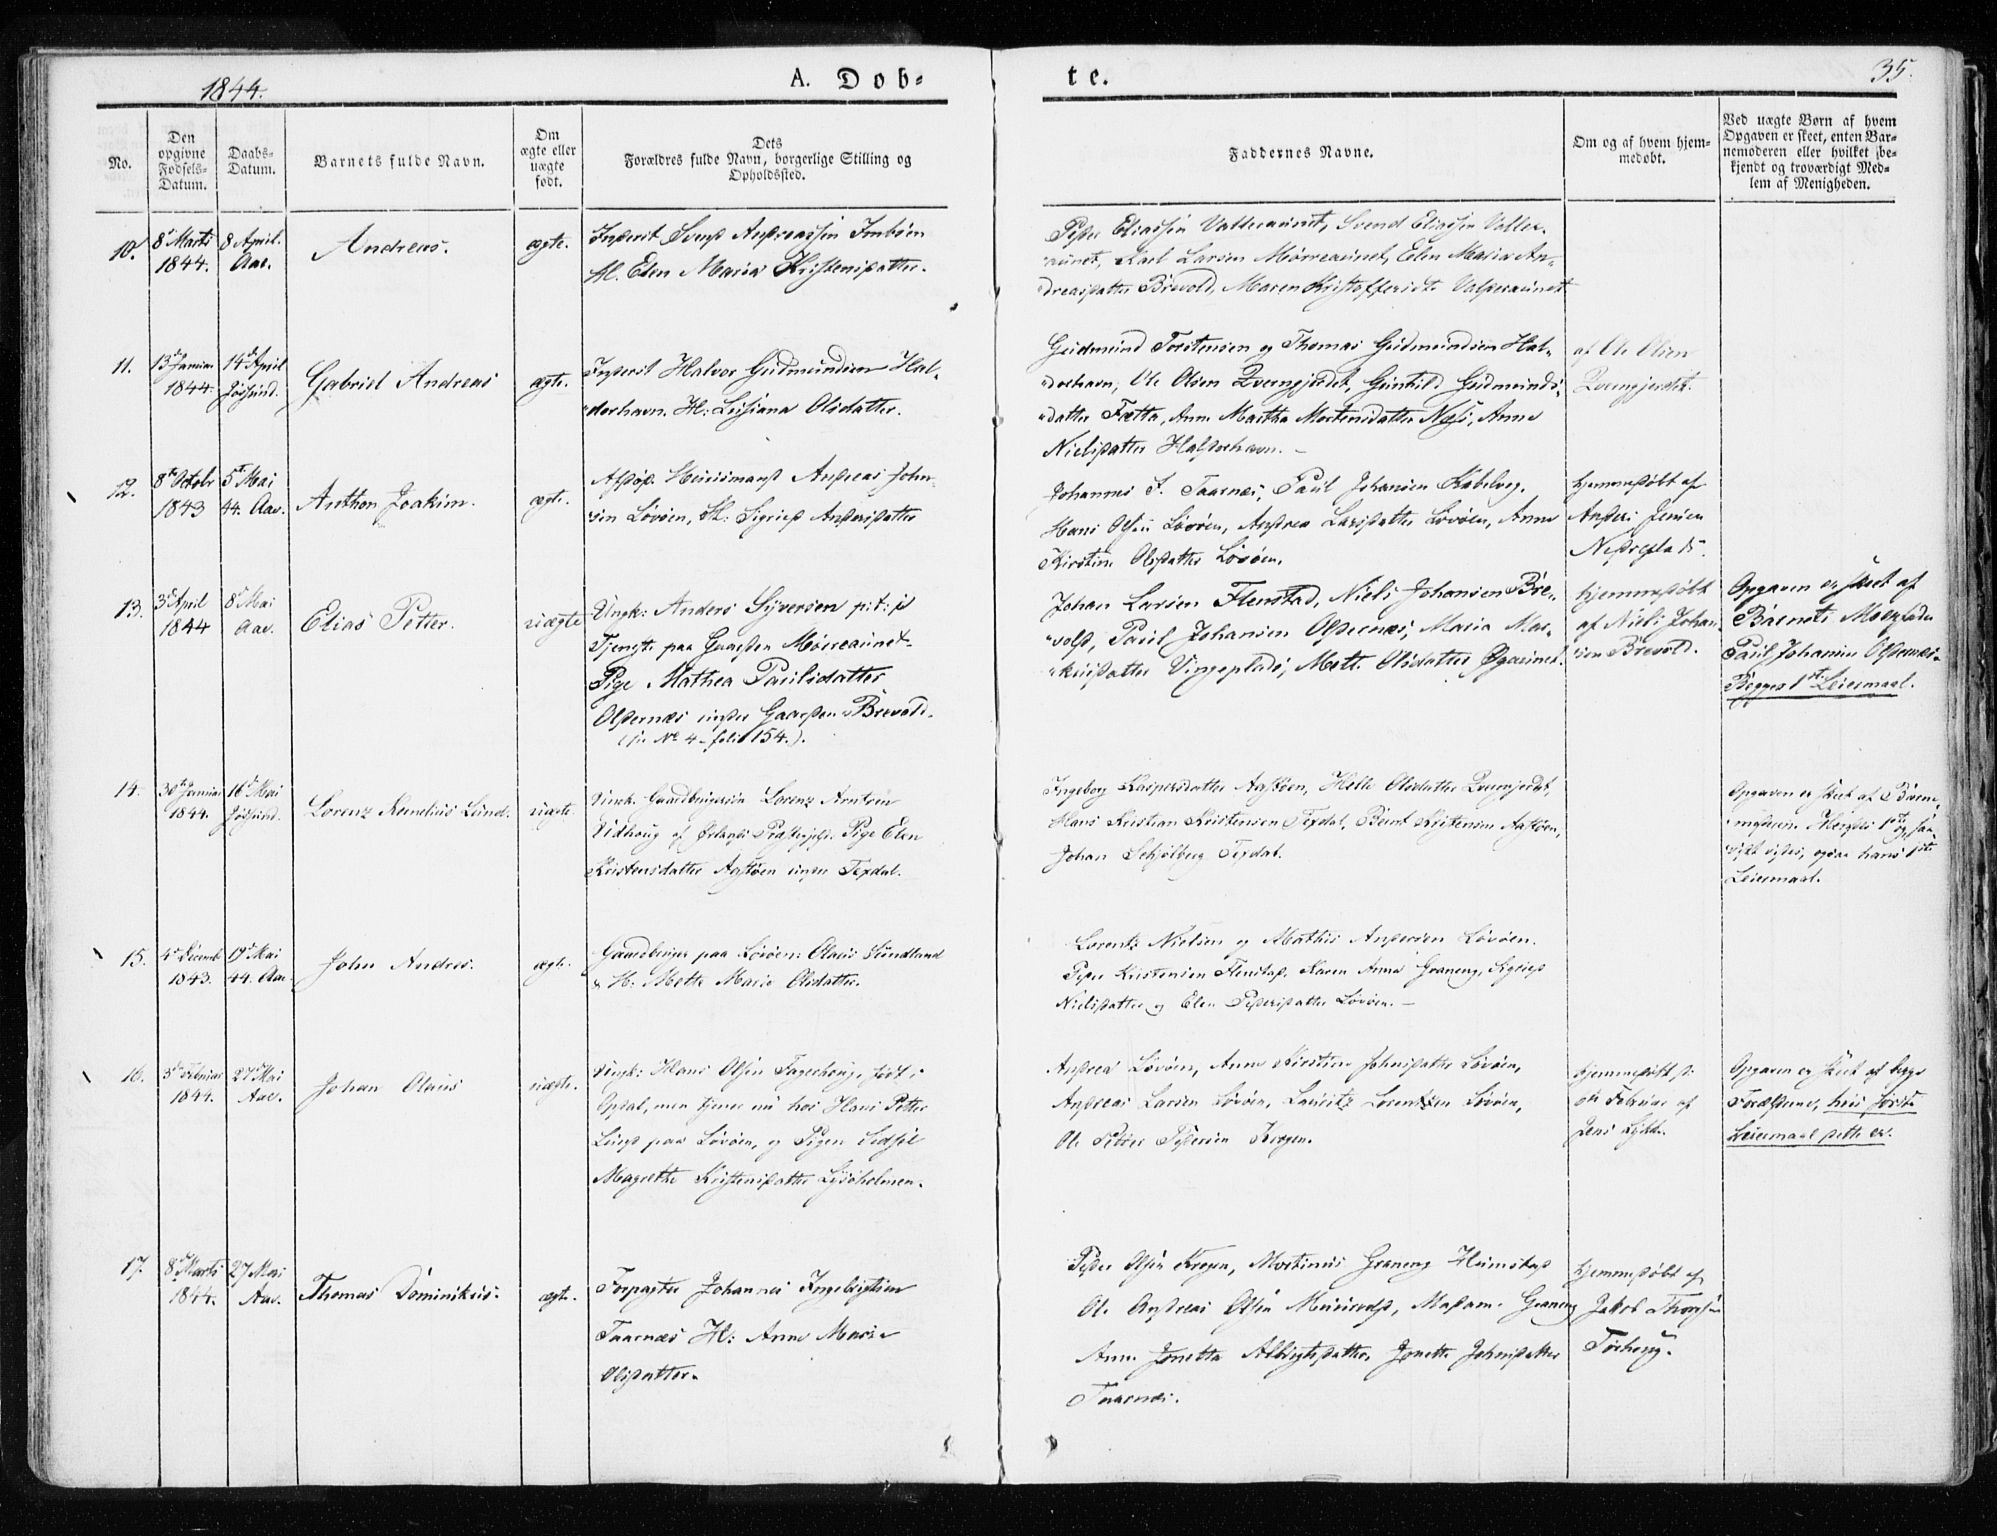 1844.
A. Døb-
te.
35.
No.
Den
opgivne
Fødsels-
Datum.
Daabs-
Datum.
Barnets fulde Navn.
Om
ægte eller
uægte
født.
Dets
Forældres fulde Navn, borgerlige Stilling og
Opholdssted.
Faddernes Navne.
Om og af hvem hjem-
medøbt.
Ved uægte Børn af hvem
Opgaven er skeet, enten Bar-
nemoderen eller hvilket be-
kjendt og troværdigt Med-
lem af Menigheden.
10.
8 Marts
1844.
8 April.
Aae.
Andreas.
ægte.
Inderst Svend Andreassen
H. Elen Maria Kristensdatter.
Peder Eliassen Valleraunet, Svend Eliassen Valler-
aunet, Karl Larsen Mørreaunet, Elen Maria An-
dreasdatter Brevold, Maren Kristoffersdt.
11.
13 Januar
1844.
14 April
Jøssund.
Gabriel Andreas
ægte.
Inderst Halvor Gudmundsen Hal-
dorhavn. H: Lusiana Olsdatter.
Gudmund Torstensen og Thomas Gudmundsen Hal-
dorhavn, Ole Olsen Qverngjerdet, Gunhild Gudmunds-
datter Fætta, Ann Martha Mortensdatter Næss, Anne
Nielsdatter Haldorhavn.
af Ole Olsen
Qverngjerdet.
12.
8 Octobr
1843
5 Mai
44. Aae.
Anthon Joakim.
ægte.
Afdøde Huusmand Andreas John-
sen Løvøen, H: Sigried Andersdatter
Johannes I. Taarnæs, Paul Johansen Kabelvog,
Hans Olsen Løvøen, Andrea Larsdatter Løvøen, Anne
Kirstine Olsdatter Løvøen.
hjemmedøbt af
Anders Jensen
13.
3 April
1844
8 Mai
Aae.
Elias Petter.
uægte
Ungk: Anders Syversen p: t: i
Tjeneste paa Gaarden Mørreaunet
Pige Mathea Paulsdatter
Oldernæs under Gaarden Brevold.
(se No 4 folio 154.).
Johan Larsen Flenstad, Niels Johansen Bre-
vold, Paul Johansen Oldernæs, Maria Mar-
kusdatter Vingeplads, Mette Olsdatter Øyaunet.
hjemmedøbt
af Niels Johan-
sen Brevold.
Opgaven er skeet af
Barnets Morfader
Paul Johansen Oldernæs.
Begges 1ste Leiermaal.
14.
30 Januar
1844.
16 Mai
Jøssund.
Lorenz Kornelius Lund.
uægte.
Ungk. Gaardbrugersøn Lorenz Arntsen
Vidhoug af Ørlands Præstegjeld. Pige Elen
Kristensdatter Aastøen under Texdal.
Ingeborg Kaspersdatter Aastøen, Helle Olsdatter Qverngjerdet,
Hans Kristian Kristensen Texdal, Bernt Kristensen Aastøen,
Johan Schjølberg Texdal.
Opgaven er skeet af Barne-
moderen. Hendes 1ste og, saa-
vidt vides, ogsaa hans 1ste
Leiermaal.
15.
4 Decemb
1843.
19 Mai
44. Aae.
John Andres.
ægte.
Gaardbruger paa Løvøen: Olaus Sundland
& H: Mette Marie Olsdatter.
Lorentz Nielsen og Mathis Andersen Løvøen.
Peder Kristensen Flenstad. Karen Anna Graneng, Sigried
Nielsdatter og Elen Pedersdatter Løvøen.
16.
3 Februar
1844.
27 Mai
Aae.
Johan Olaus
uægte.
Ungk: Hans Olsen Fagerhoug, født i
Opdal, men tjener nu hos Hans Petter
Lund paa Løvøen, og Pigen Sidsel
Magrethe Kristensdatter Lysøholmen.
Andrea Løvøen, Anne Kirstine Johnsdatter Løvøen,
Andreas Larsen Løvøen, Lauritz Lorentzen Løvøen,
Ole Peder Pedersen Krogen.
hjemmedøbt
Februar af
Jens
Opgaven er skeet af begge
Forældrene, hvis første
Leiermaal dette er.
17.
8 Marts
1844.
27 Mai
Aae.
Thomas Dominikus.
ægte.
Forpagter Johannes Ingebrigtsen
Taarnæs H: Anne Marie
Olsdatter.
Peder Olsen Krogen, Mortinus Graneng
Ole Andreas Olsen Madam Graneng
Anne Jonetta Albrigtsdatter, Jonette Johnsdatter
Taarnæs.
hjemmedøbt af
Jakob Thomsen
Torhoug.